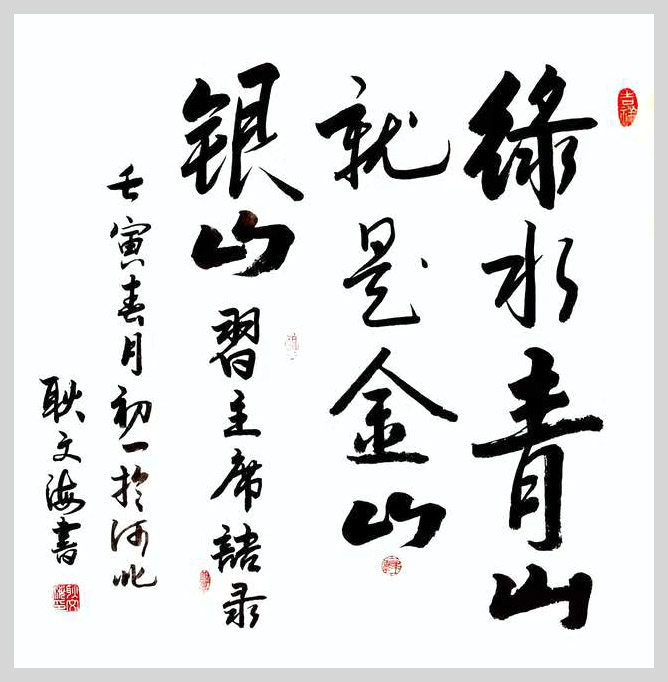 綠水青山
就是金山
银山 習主席語录
壬寅春月初一於河北
耿文海書
吉祥